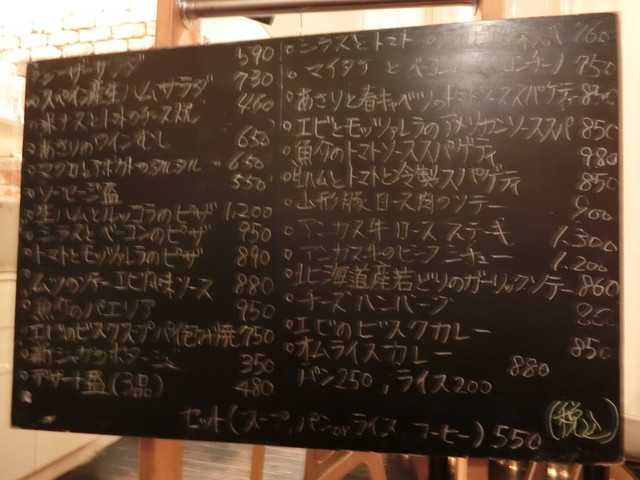 シーザーサラダ 590
スペイン産生ハムサラダ 730
米ナスとトマトのチーズ焼 460
あさりのワインむし 650
マグロとアボカドのタルタル 650
ソーセージ盛 550
生ハムとルッコラのピザ 1,200
シラスとベーコンのピザ 950
トマトとモッツァレラのピザ 890
ムツのソテーエビ風味ソース 880
魚介のパエリア 950
エビのビスクスープパイ包み焼 750
新じゃがのポタージュ 350
デザート盛(3品) 480
シラスとトマト 760
マイタケとベーコンの 750
あさりと春キャベツのトマトソーススパゲティ 850
エビとモッツァレラのアメリカンソーススパ 850
魚介のトマトソーススパゲティ 980
生ハムとトマトと冷製スパゲティ 850
山形豚ロース肉のソテー 900
アンガス牛ロースステーキ 1,300
アンガス牛のビーフシチュー 1,200
北海道産若どりのガーリックソテー 860
チーズハンバーグ 860
エビのビスクカレー 850
オムライスカレー 880
パン250,ライス200
セット(スープ,パンorライス コーヒー) 550 (税込)